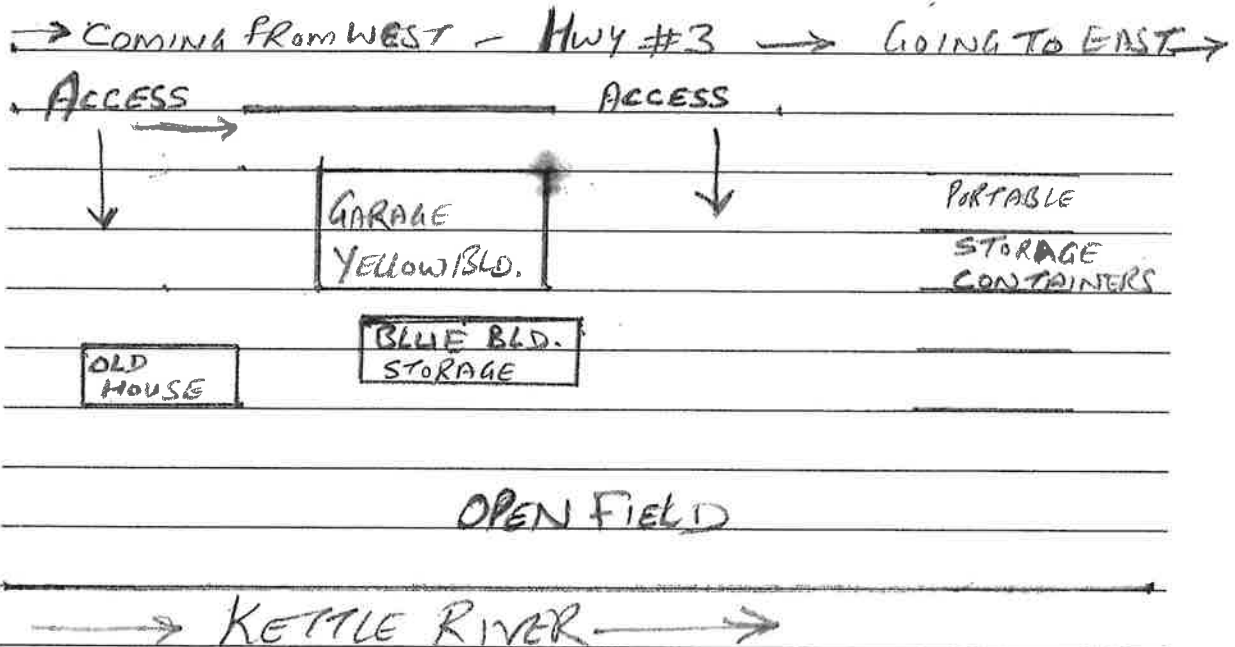 COMING FROM WEST - HWY #3 GOING TO EAST
ACCESS ACCESS
GARAGE
YELLOW BLD.
PORTABLE
STORAGE
CONTAINERS
BLUE BLD.
STORAGE
OLD
HOUSE
OPEN FIELD
KETTLE RIVER